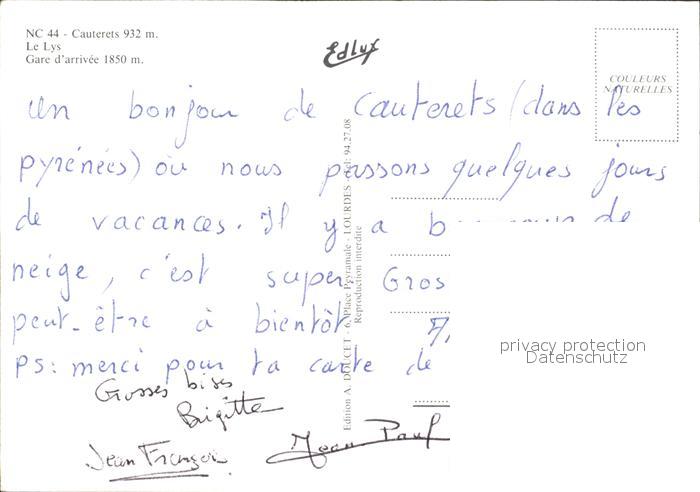 NC 44 - Cauterets 932 m.
Le Lys
Gare d'arrivée 1850 m.
Edlux
COULEURS
NATURELLES
un bonjour de Cauterets (dans les
pyrénées) où nous passons quelques jours
de vacances. Il y a de
neige, c'est super. Gros
peut-être à bientôt.
PS: merci pour ta carte de
Grosses bises
Brigitte
Jean François
Jean Paul
Edition A. DOUCET - 6, Place Peyramale - LOURDES - Tél. 94.27.08
Reproduction interdite
privacy protection
Datenschutz